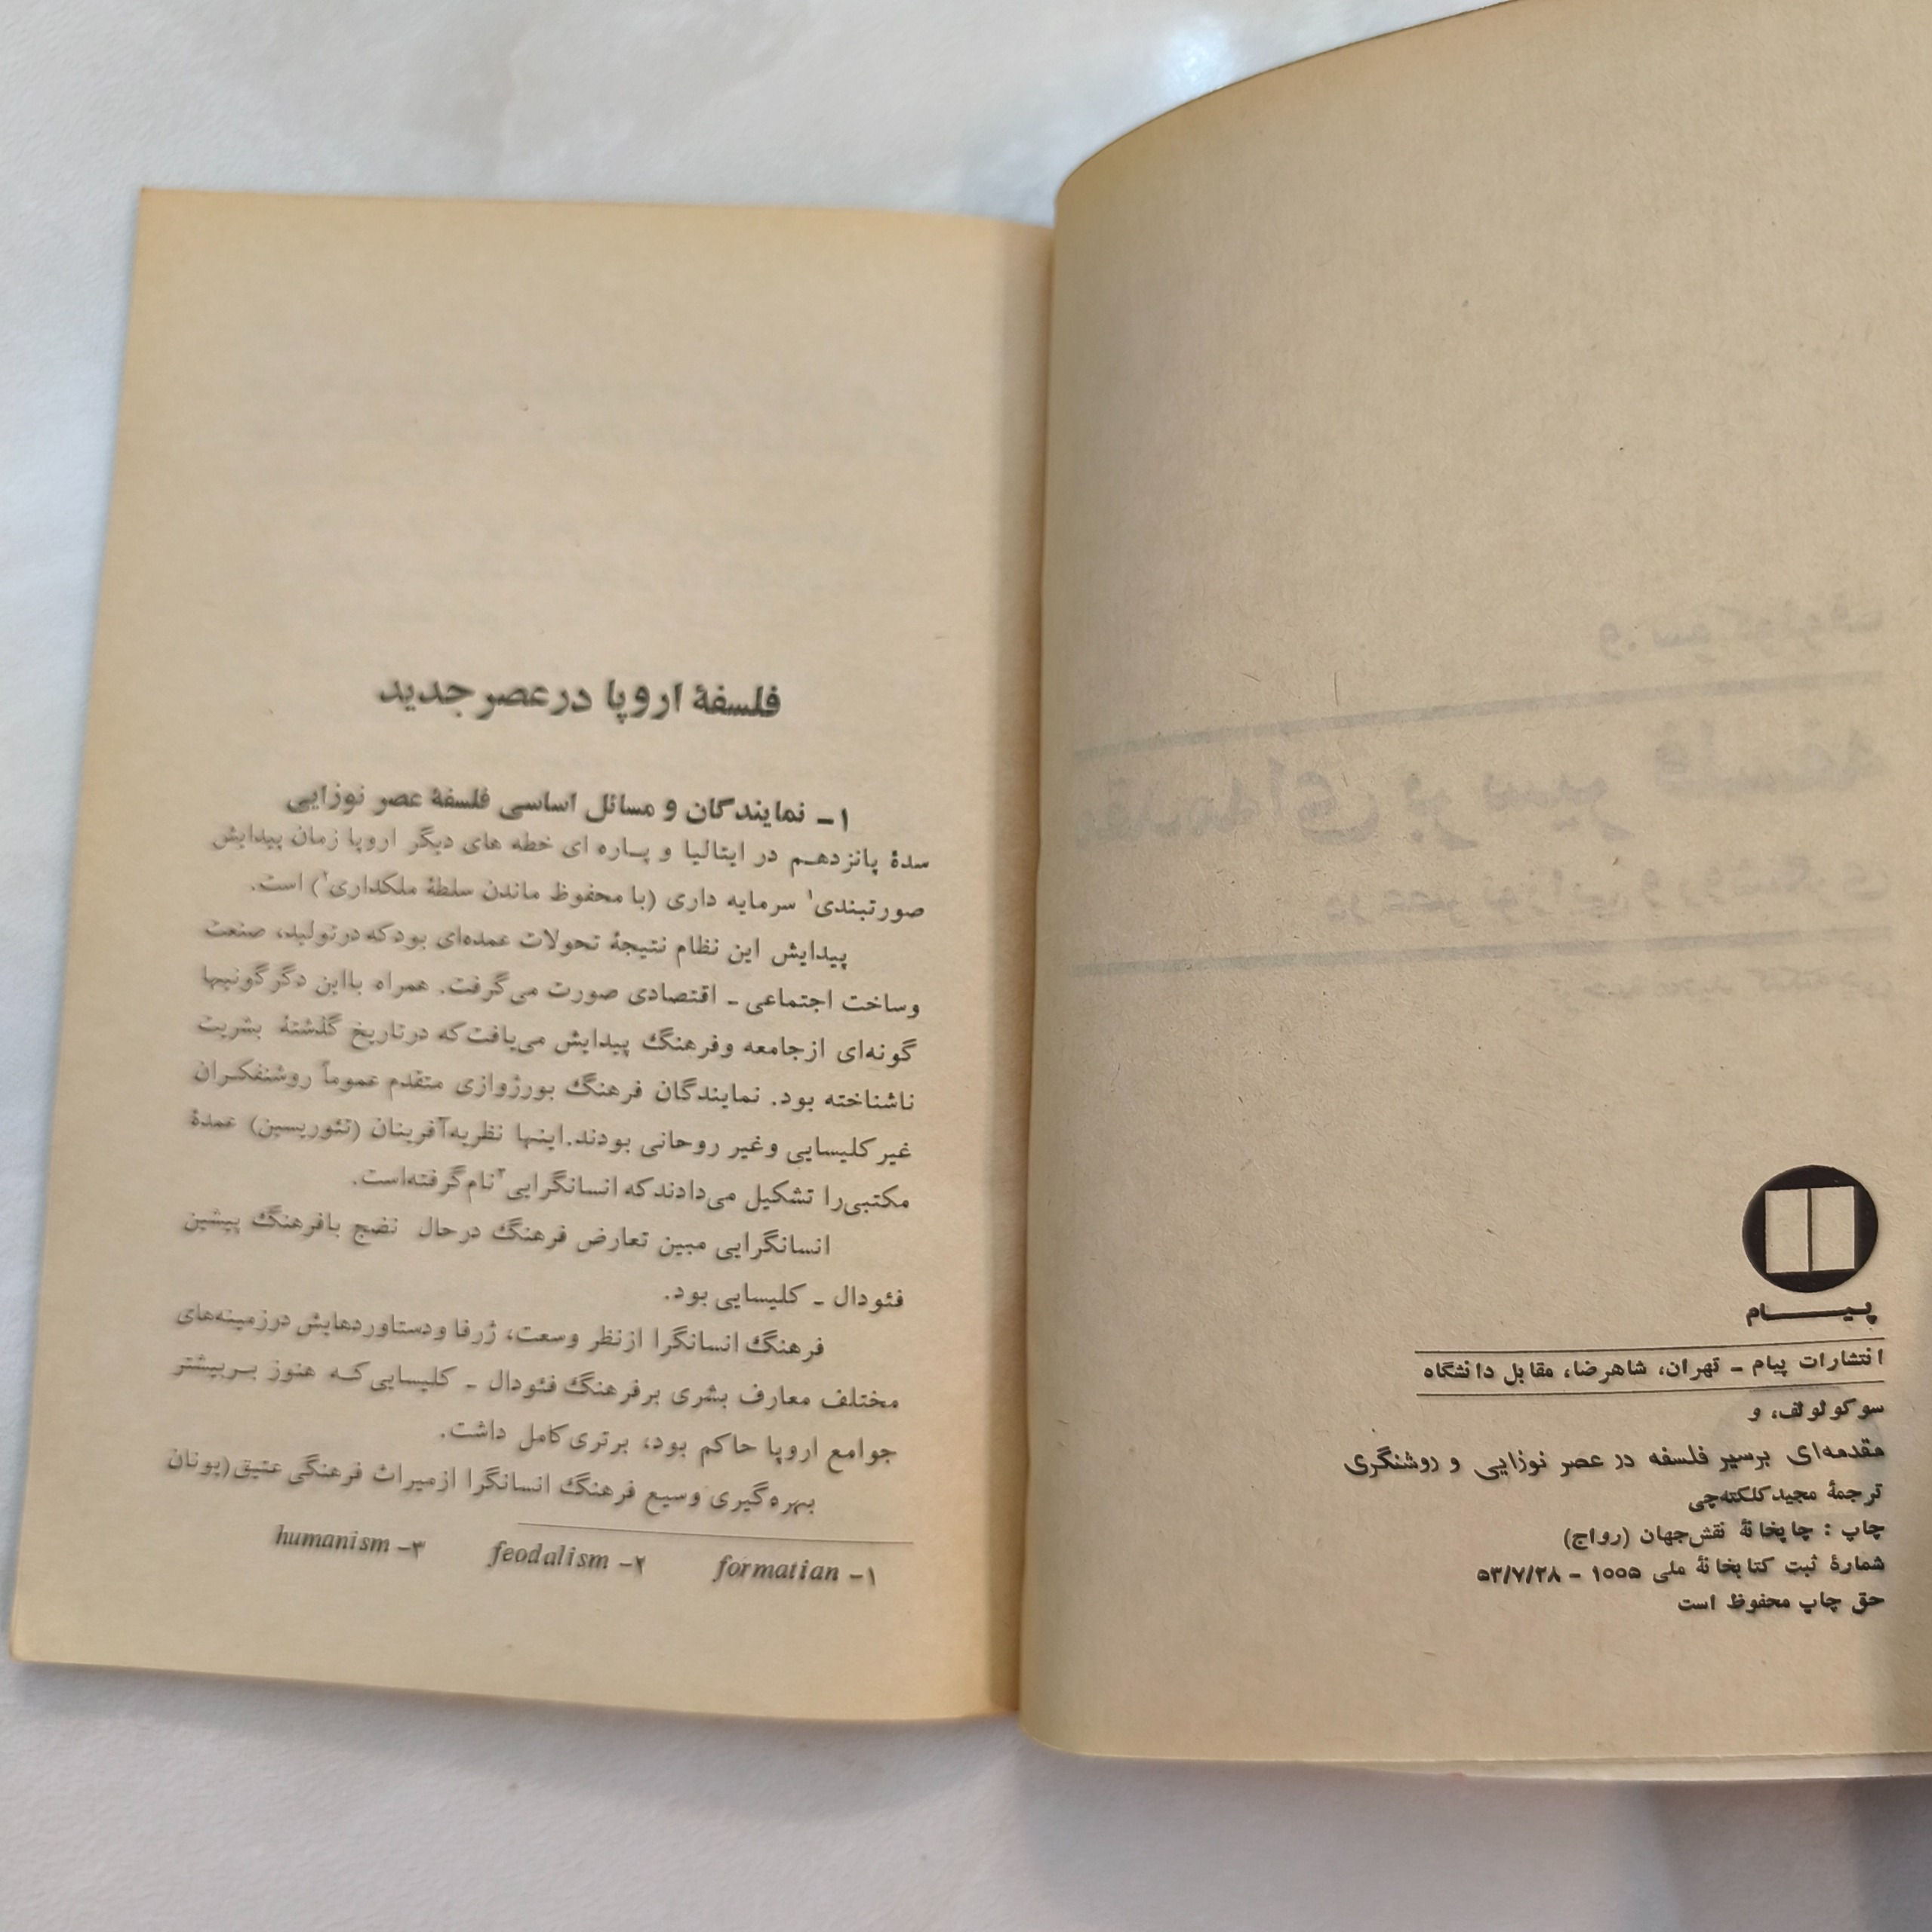 پیــام
انتشارات پیام ـ تهران، شاهرضا، مقابل دانشگاه
سوکولوف، و
مقدمه‌ای برسیر فلسفه در عصر نوزایی و روشنگری
ترجمهٔ مجیدکلکته‌چی
چاپ : چاپخانهٔ نقش‌جهان (رواج)
شمارهٔ ثبت کتابخانهٔ ملی ۱۰۰۵ - ۵۳/۷/۲۸
حق چاپ محفوظ است
فلسفهٔ اروپا درعصرجدید
۱ـ نمایندگان و مسائل اساسی فلسفهٔ عصر نوزایی
سدهٔ پانزدهـم در ایتالیا و پـاره ای خطه های دیگر اروپا زمان پیدایش
صورتبندی۱ سرمایه داری (با محفوظ ماندن سلطهٔ ملکداری۲) است.
پیدایش این نظام نتیجهٔ تحولات عمده‌ای بودکه درتولید، صنعت
وساخت اجتماعی ـ اقتصادی صورت می‌گرفت. همراه بااین دگرگونیها
گونه‌ای ازجامعه وفرهنگ پیدایش می‌یافت‌که درتاریخ گذشتهٔ بشریت
ناشناخته بود. نمایندگان فرهنگ بورژوازی متقدم عموماً روشنفکـران
غیرکلیسایی وغیر روحانی بودند.اینها نظریه‌آفرینان (تئوریسین) عمدهٔ
مکتبی‌را تشکیل می‌دادندکه انسانگرایی۳نام‌گرفته‌است.
انسانگرایی مبین تعارض فرهنگ درحال نضج بافرهنگ پیشین
فئودال ـ کلیسایی بود.
فرهنگ انسانگرا ازنظر وسعت، ژرفا ودستاوردهایش درزمینه‌های
مختلف معارف بشری برفرهنگ فئودال ـ کلیسایی‌کـه هنوز بـربیشتر
جوامع اروپا حاکم بود، برتری‌کامل داشت.
بهره‌گیری وسیع فرهنگ انسانگرا ازمیراث فرهنگی عتیق(یونان
۱ـ formatian ۲ـ feodalism ۳ـ humanism